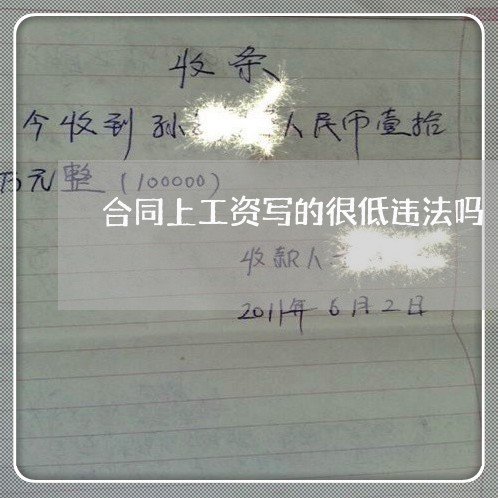 收条
今收到孙 人民币壹拾
万元整(100000)
合同上工资写的很低违法吗
收款人
2011年6月2日